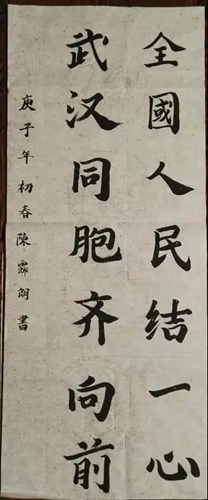 全國人民结一心
武汉同胞齐向前
庚子年初春陳霈朗書